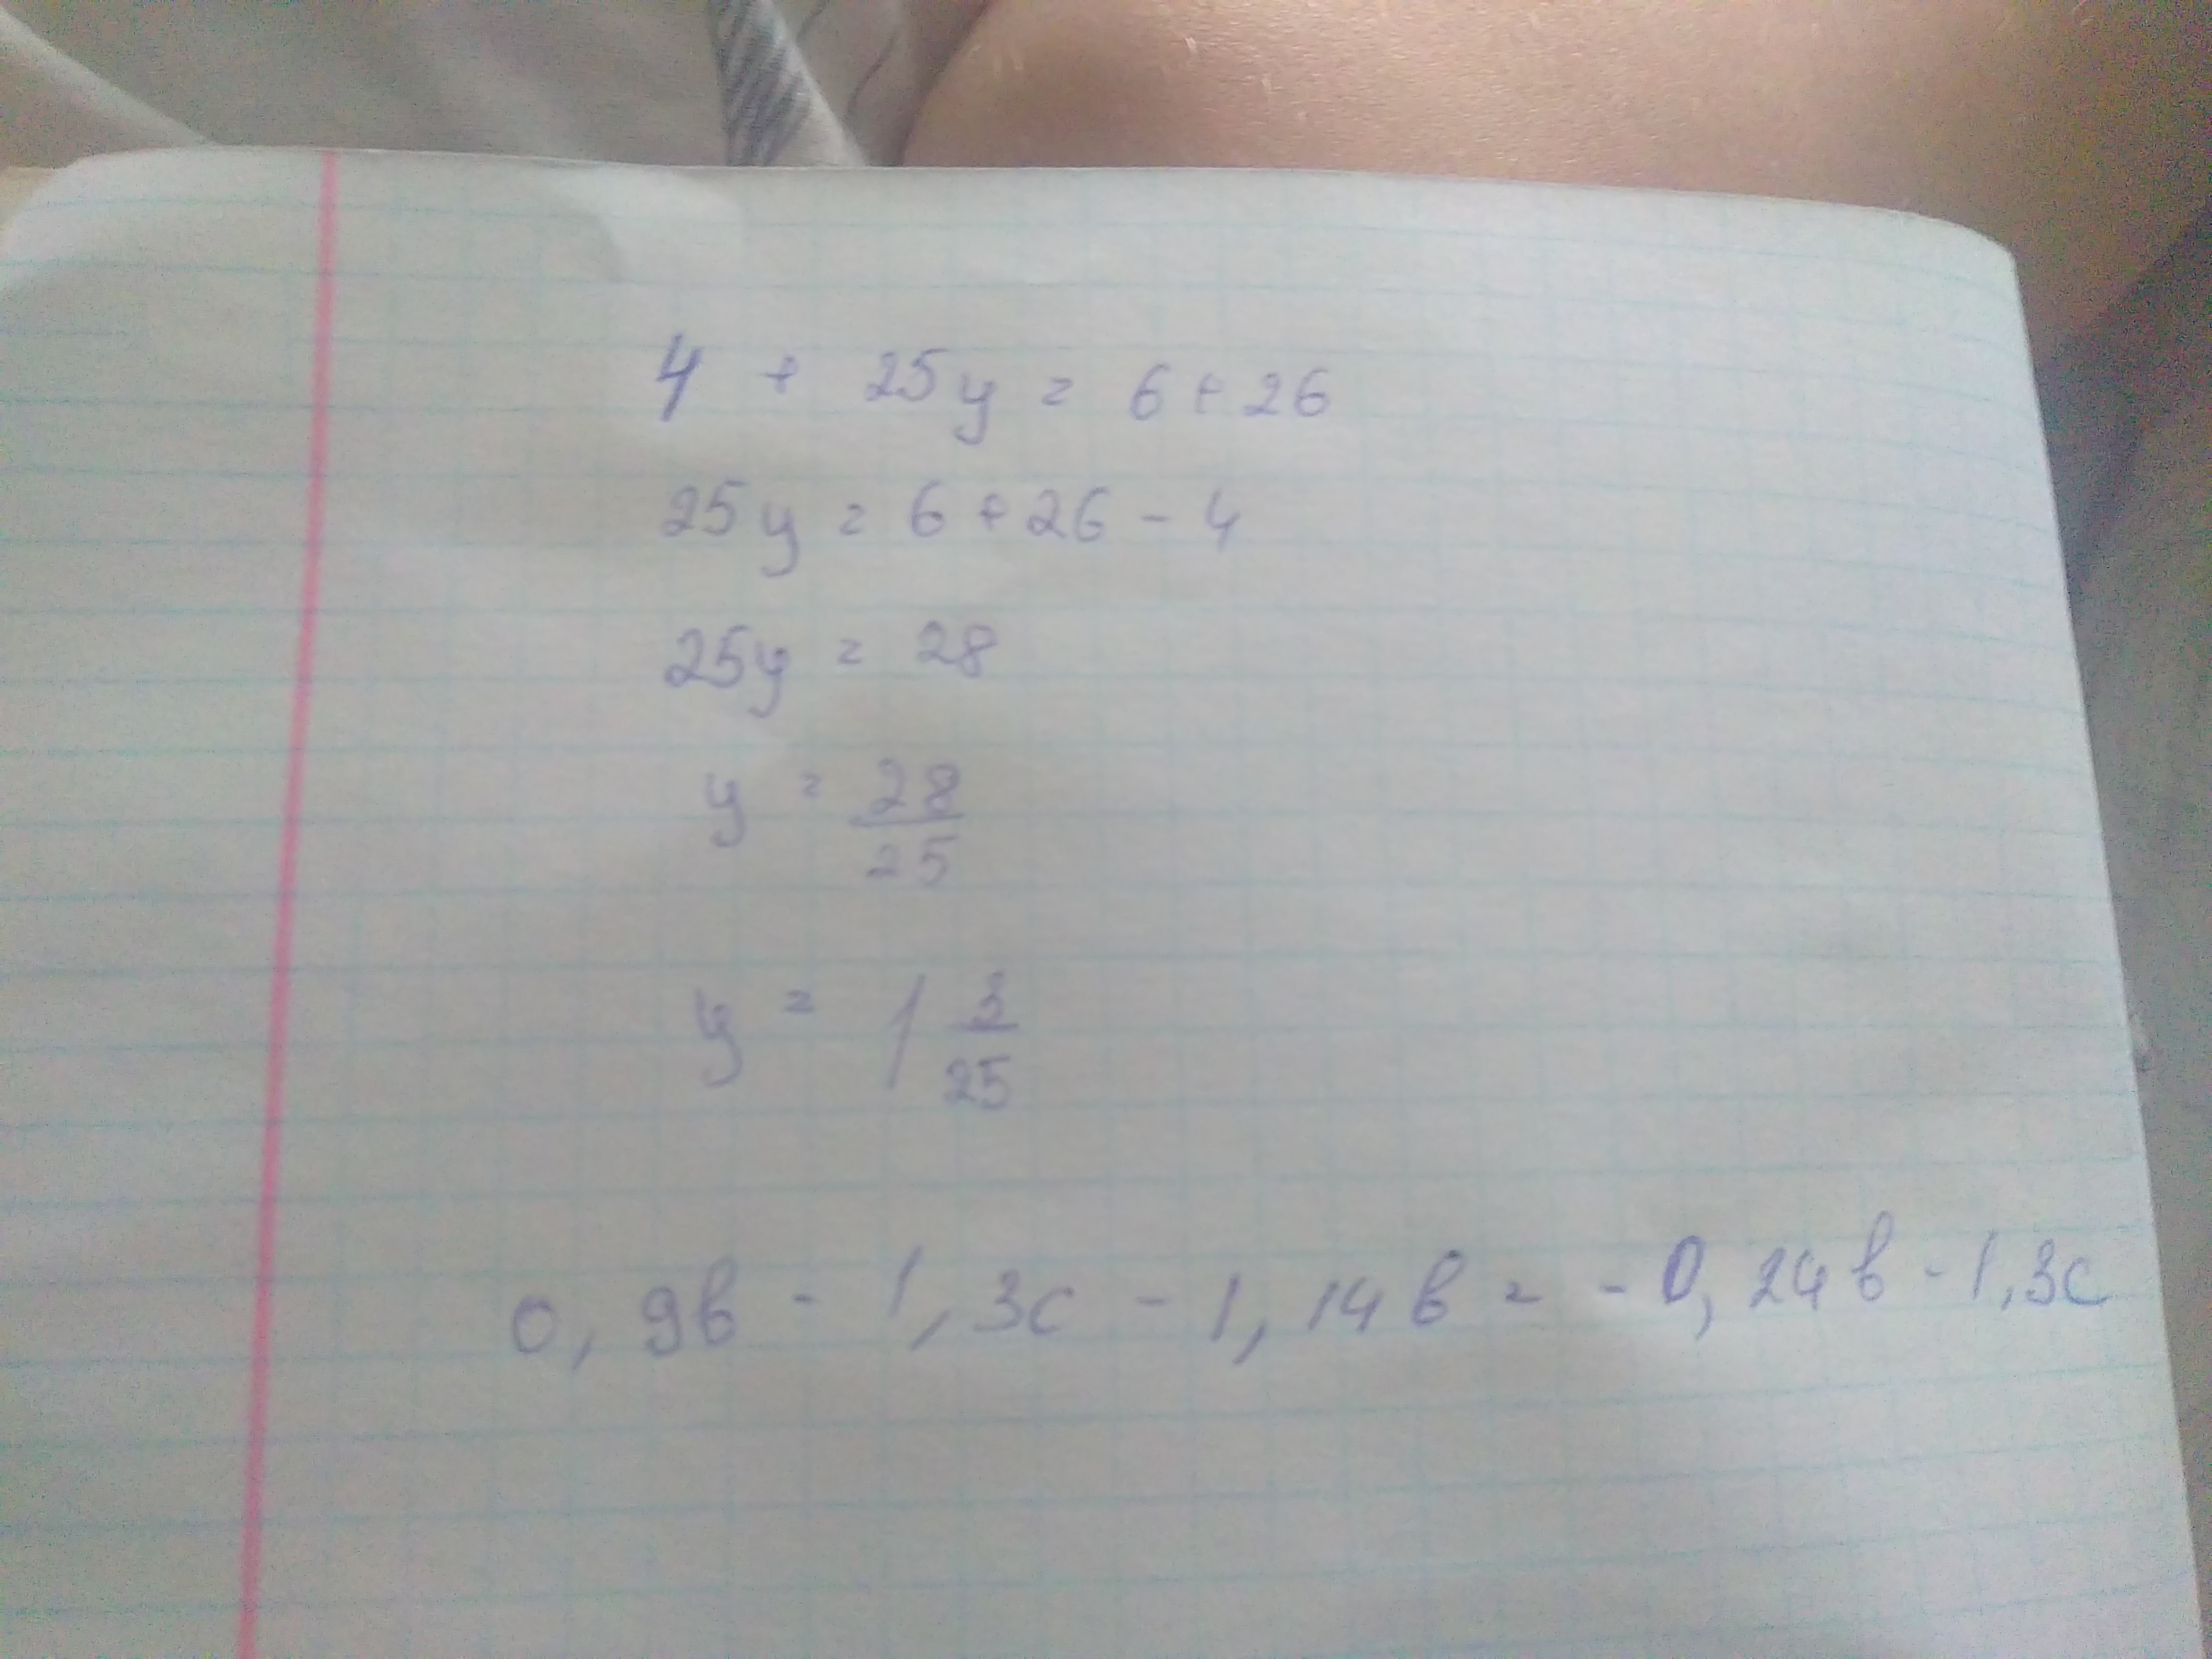 4 + 25y = 6 + 26
25y = 6 + 26 - 4
25y = 28
y = 28/25
y = 1 3/25
0,9в - 1,3с - 1,14в = - 0,24в - 1,3с